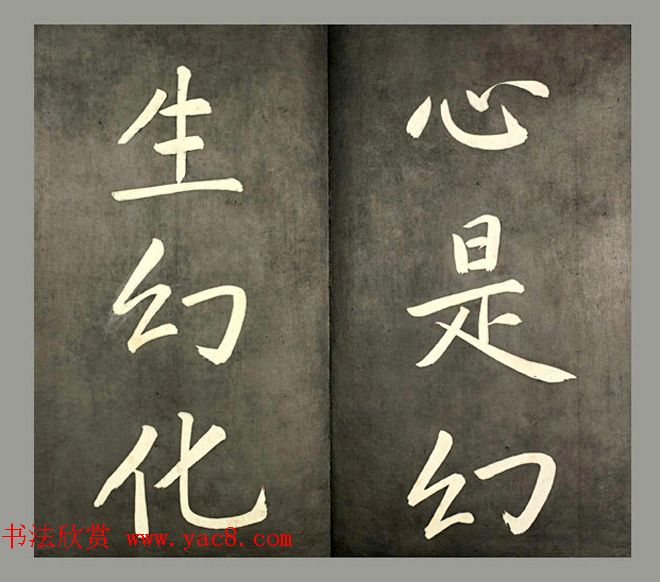 心是幻
生幻化
书法欣赏 www.yac8.com